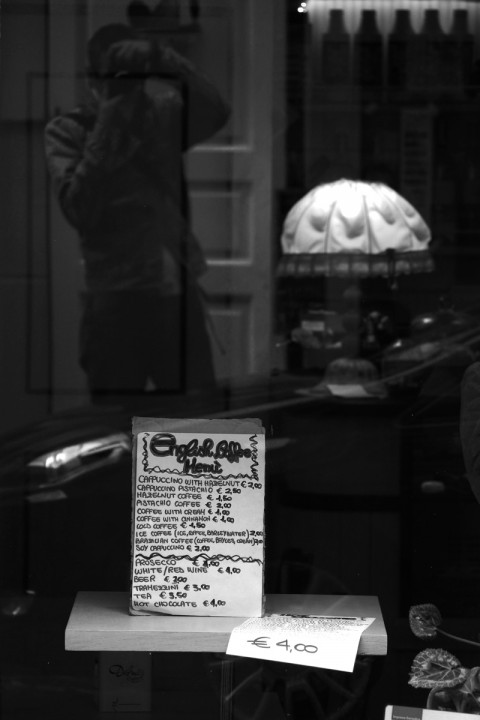 English Coffee
Menù
CAPPUCCINO WITH HAZELNUT € 2,00
CAPPUCCINO PISTACHIO € 2,50
HAZELNUT COFFEE € 1,50
PISTACHIO COFFEE € 2,00
COFFEE WITH CREAM € 1,00
COFFEE WITH CINNAMON € 1,00
COLD COFFEE € 1,50
ICE COFFEE (ICE, COFFEE, BARLEY WATER) 2,00
BRAZILIAN COFFEE (COFFEE, CREAM)
SOY CAPPUCCINO € 2,00
PROSECCO €
WHITE/RED WINE € 4,00
BEER € 3,00
TRAMEZZINI € 3,00
TEA € 3,50
HOT CHOCOLATE € 4,00
€ 4,00